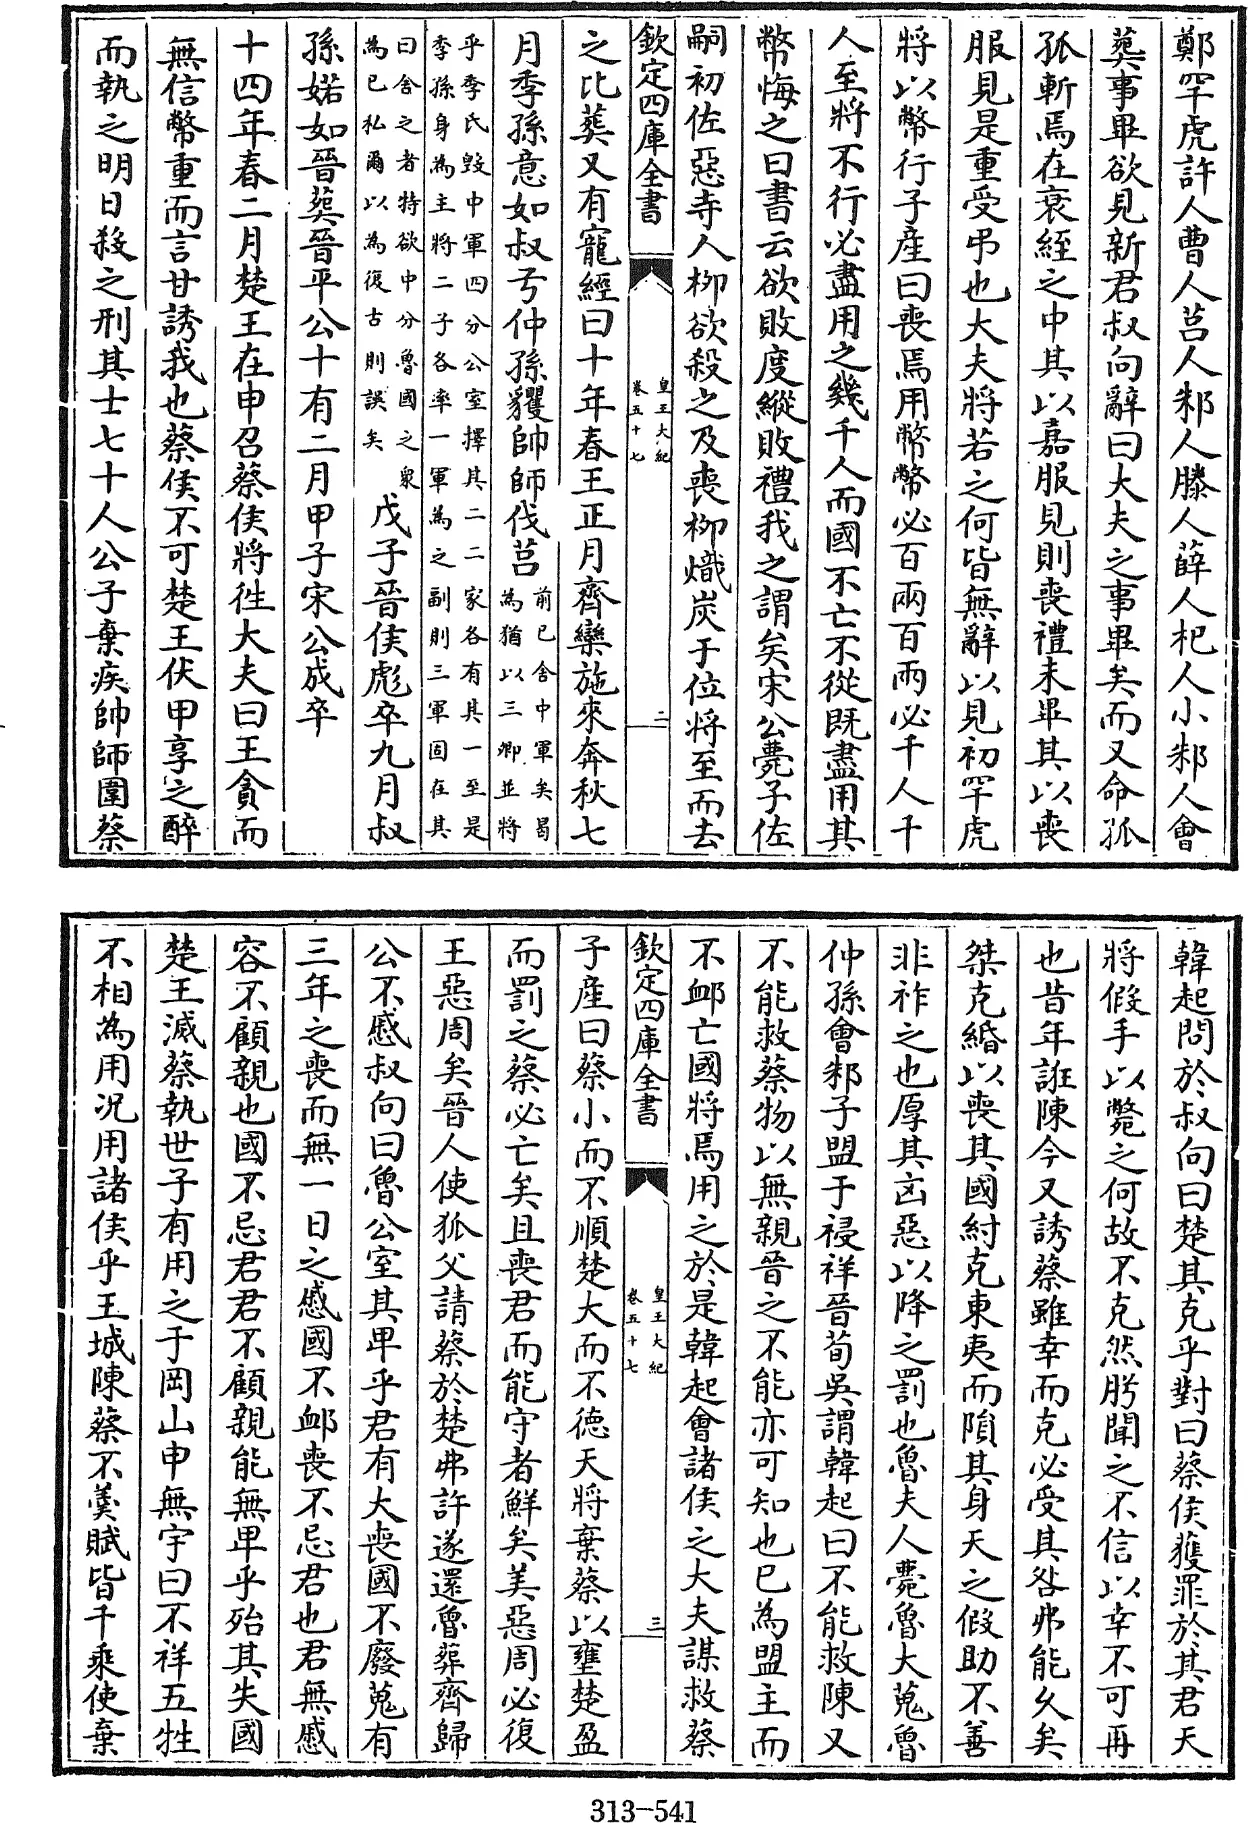 鄭罕虎許人曹人莒人邾人滕人薛人杞人小邾人會
葬事畢欲見新君叔向辭曰大夫之事畢矣而又命孤
孤斬焉在衰絰之中其以嘉服見則喪禮未畢其以喪
服見是重受弔也大夫將若之何皆無辭以見初罕虎
將以幣行子產曰喪焉用幣幣必百兩百兩必千人千
人至將不行必盡用之幾千人而國不亡不從既盡用其
幣悔之曰書云欲敗度縱敗禮我之謂矣宋公薨子佐
嗣初佐惡寺人柳欲殺之及喪柳熾炭于位將至而去
欽定四庫全書
皇王大紀
卷五十七
二
之比葬又有寵經曰十年春王正月齊欒施來奔秋七
月季孫意如叔弓仲孫貜帥師伐莒
前已舍中軍矣曷
為猶以三卿並將
乎季氏毀中軍四分公室擇其二二家各有其一至是
季孫身為主將二子各率一軍為之副則三軍固在其
曰舍之者特欲中分魯國之衆
為已私爾以為復古則誤矣
戊子晉侯彪卒九月叔
孫婼如晉葬晉平公十有二月甲子宋公成卒
十四年春二月楚王在申召蔡侯將徃大夫曰王貪而
無信幣重而言甘誘我也蔡侯不可楚王伏甲享之醉
而執之明日殺之刑其士七十人公子棄疾帥師圍蔡
韓起問於叔向曰楚其克乎對曰蔡侯獲罪於其君天
將假手以斃之何故不克然肹聞之不信以幸不可再
也昔年誑陳今又誘蔡雖幸而克必受其咎弗能久矣
桀克緡以喪其國紂克東夷而隕其身天之假助不善
非祚之也厚其凶惡以降之罰也魯夫人薨魯大蒐魯
仲孫會邾子盟于祲祥晉荀吳謂韓起曰不能救陳又
不能救蔡物以無親晉之不能亦可知也已為盟主而
不衈亡國將焉用之於是韓起會諸侯之大夫謀救蔡
欽定四庫全書
皇王大紀
卷五十七
三
子產曰蔡小而不順楚大而不德天將棄蔡以壅楚盈
而罰之蔡必亡矣且喪君而能守者鮮矣美惡周必復
王惡周矣晉人使狐父請蔡於楚弗許遂還魯葬齊歸
公不慼叔向曰魯公室其卑乎君有大喪國不廢蒐有
三年之喪而無一日之慼國不衈喪不忌君也君無慼
容不顧親也國不忌君君不顧親能無卑乎殆其失國
楚王滅蔡執世子有用之于岡山申無宇曰不祥五牲
不相為用況用諸侯乎王城陳蔡不羹賦皆千乘使棄
313-541